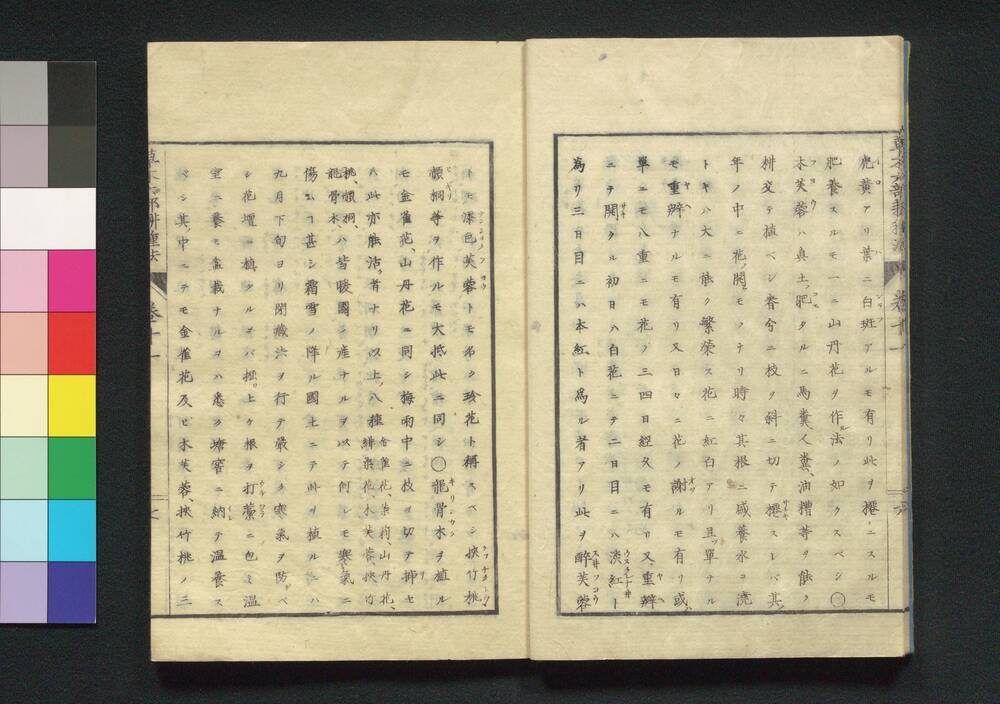 虎黄アリ葉ニ白斑アルモ有リ此ヲ𢴃ニスルモ
肥養スルモ一ニ山丹花ヲ作ル法ノ如クスベシ〇
木芙蓉ハ真土ノ肥タルニ馬糞、人糞、油糟等ヲ能ク
耕交テ植ベシ春分ニ枝ヲ斜ニ切テ𢴃スレバ其
年ノ中ニ花ノ開モノナリ時々其根ニ感養水ヲ澆
トキハ大ニ能ク繁榮ス花ニ紅白アリ且ツ單ナル
モ重瓣ナルモ有リ又日々ニ花ノ謝ルモ有リ或ハ
單ニモ八重ニモ花ノ三四日経タルモ有リ又重瓣
ニテ開タル初日ハ白花ニテ二日目ニハ淡紅ト
為リ三日目ニハ本紅ト爲ル者アリ此ヲ醉芙蓉
草木六部耕種法 巻十一 六
トモ添色芙蓉トモ名ク珍花ト稱スベシ挾竹桃
頳桐等ヲ作ルモ大抵此ニ同シ〇龍骨木ヲ植ル
モ金雀花、山丹花ニ同シ梅雨中ニ枝ヲ切テ挿セ
ハ此亦能活ク者ナリ以上ノ八種金雀花、山丹花、木芙蓉、挾竹
桃、頳桐、龍骨木、ハ皆暖國ノ産ナルヲ以テ何レモ寒氣ニ
傷ムコト甚シ霜雪ノ降ル國土ニテ外ニ植ルニハ
九月下旬ヨリ閉藏法ヲ行テ嚴シク寒氣ヲ防グベ
シ花壇ニ植タルヲバ𢴃上ケ根ヲ打藁ニ包ミ温
室ニ養ヒ盆栽ナルヲハ悉ク塘窖ニ納テ温養ス
ベシ其中ニテモ金雀花及ヒ木芙蓉、挾竹桃ノ三
草木六部耕種法 巻十一 七